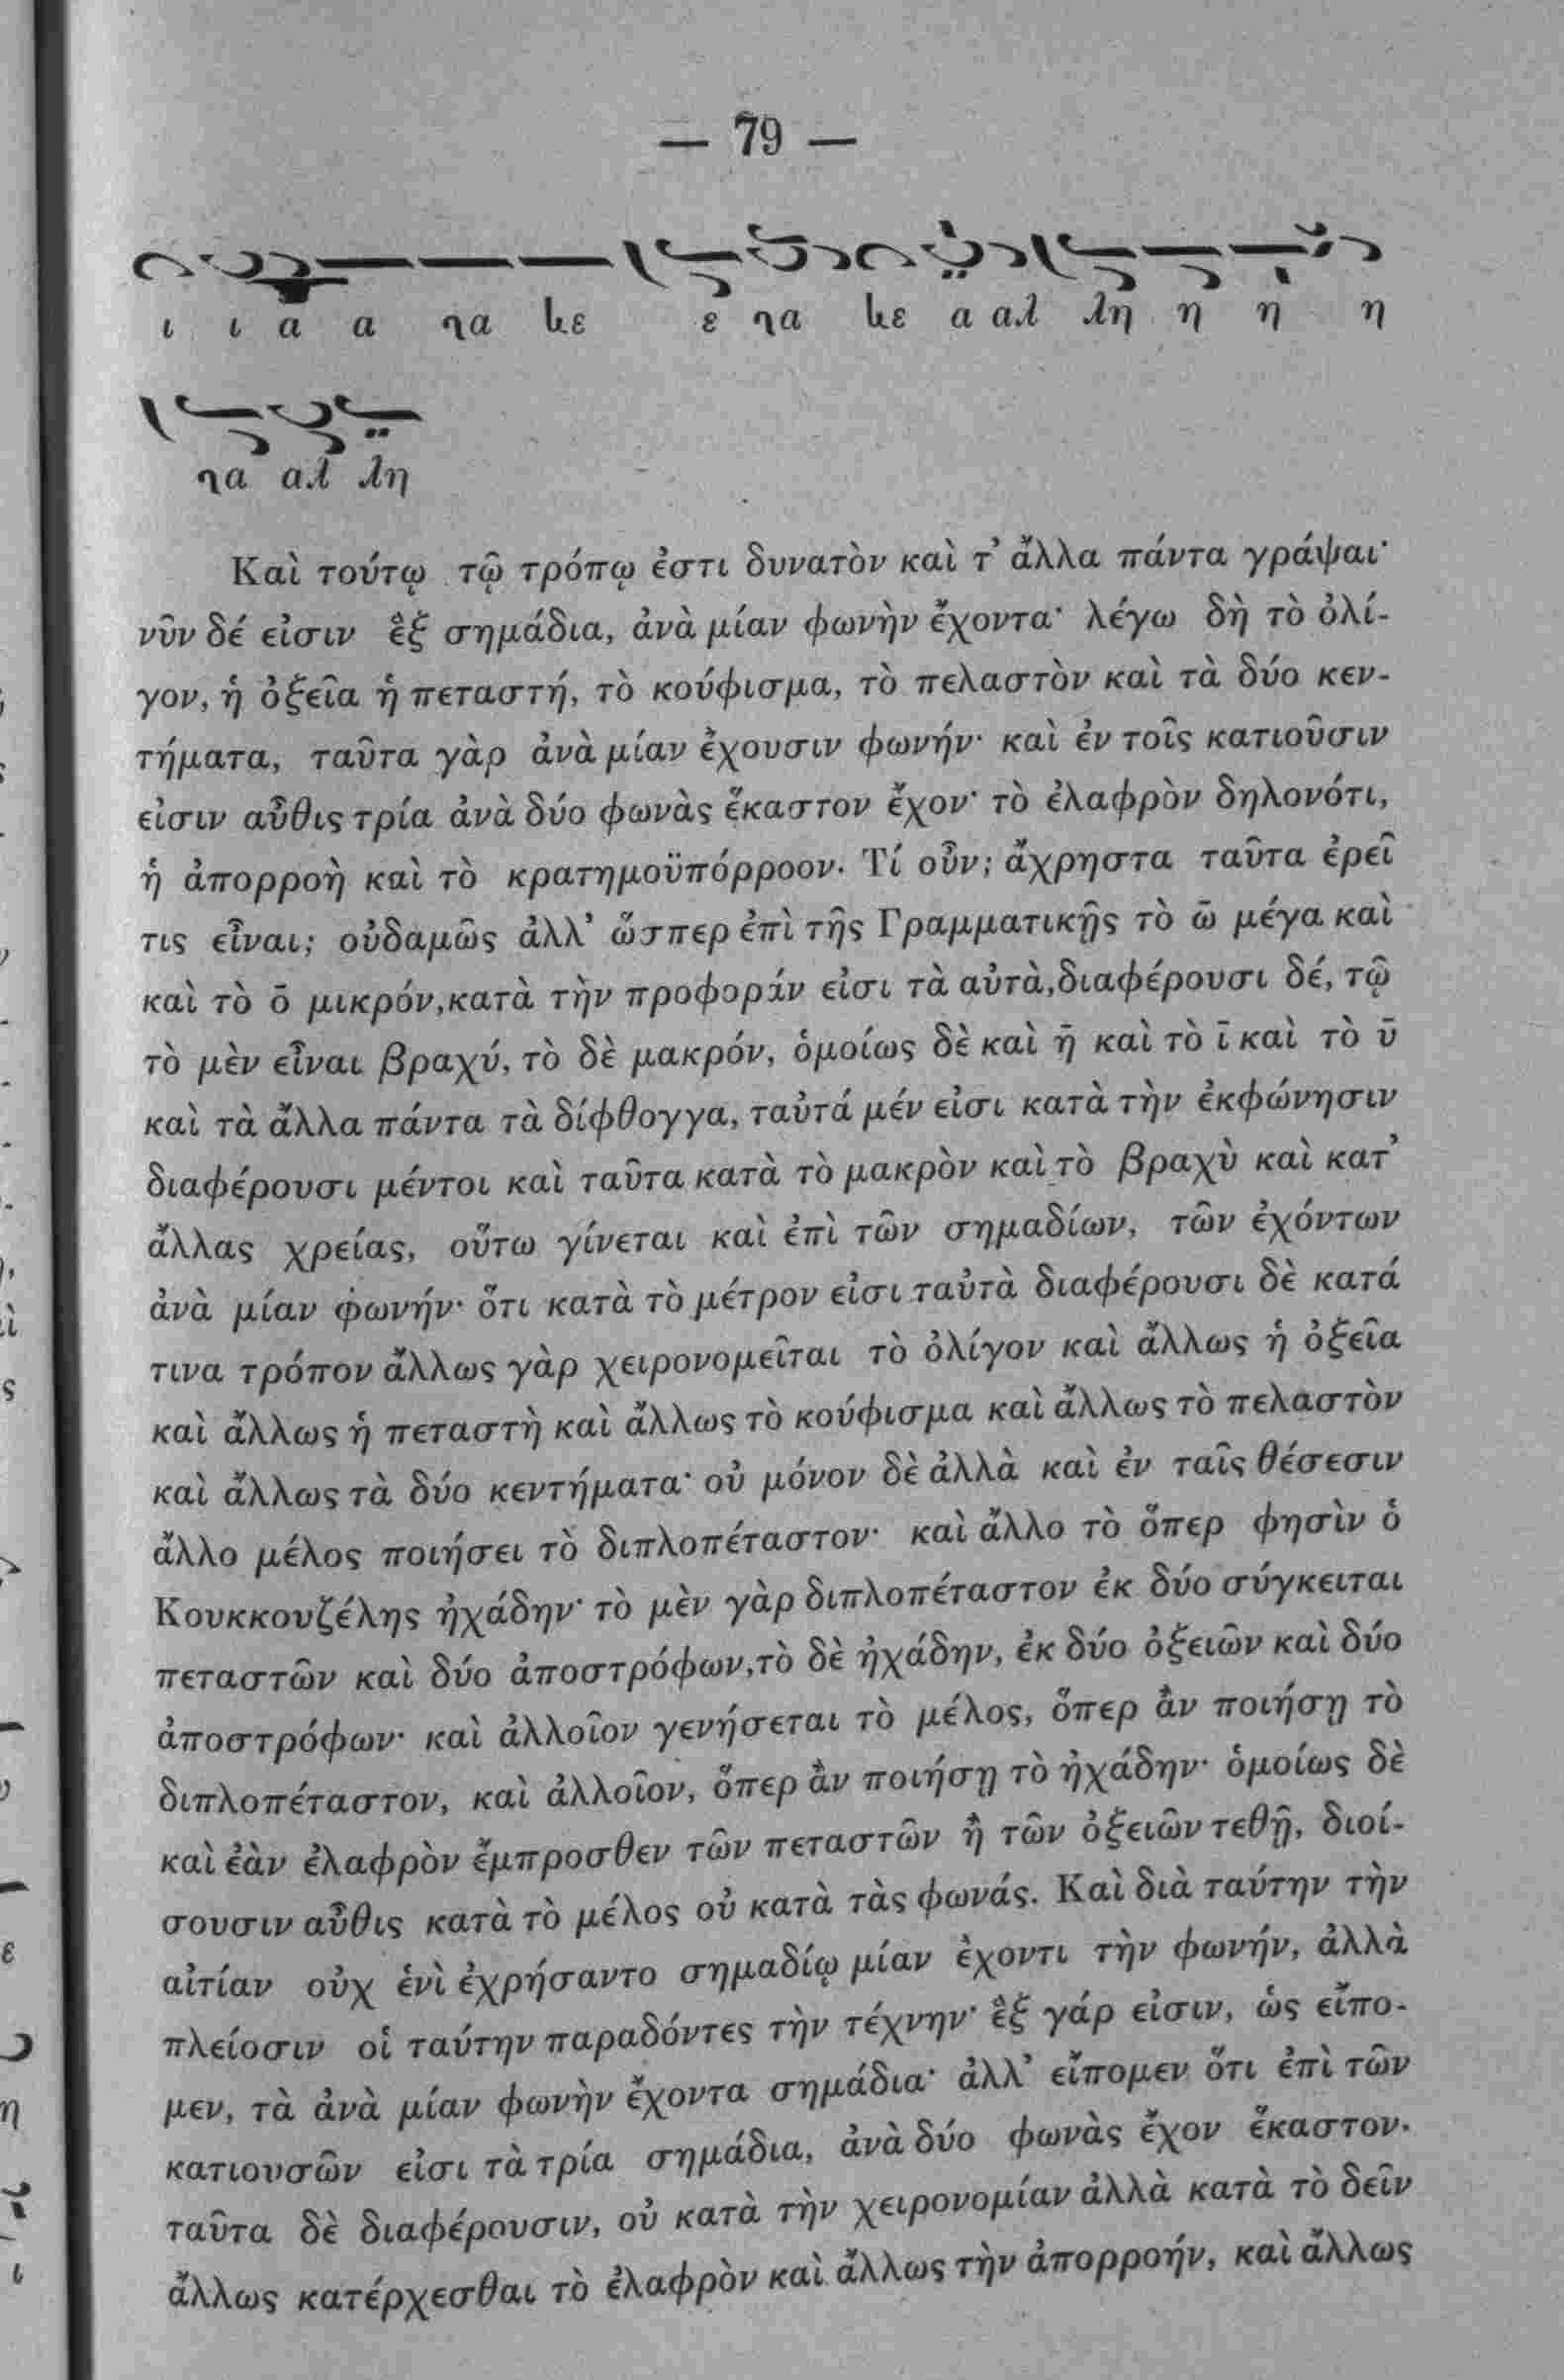 — 79 —
ι ι α α γα με ε γα με α αλ λη η η η
γα αλ λη
Καὶ τούτῳ τῷ τρόπῳ ἐστι δυνατὸν καὶ τ’ ἄλλα πάντα γράψαι·
νῦν δέ εἰσιν ἓξ σημάδια, ἀνὰ μίαν φωνὴν ἔχοντα· λέγω δὴ τὸ ὀλί-
γον, ἡ ὀξεῖα ἡ πεταστή, τὸ κούφισμα, τὸ πελαστὸν καὶ τὰ δύο κεν-
τήματα, ταῦτα γὰρ ἀνὰ μίαν ἔχουσιν φωνήν· καὶ ἐν τοῖς κατιοῦσιν
εἰσιν αὖθις τρία ἀνὰ δύο φωνὰς ἕκαστον ἔχον· τὸ ἐλαφρὸν δηλονότι,
ἡ ἀπορροὴ καὶ τὸ κρατημοϋπόρροον. Τί οὖν; ἄχρηστα ταῦτα ἐρεῖ
τις εἶναι; οὐδαμῶς ἀλλ’ ὥσπερ ἐπὶ τῆς Γραμματικῇς τὸ ω̄ μέγα καὶ
καὶ τὸ ο̄ μικρόν, κατὰ τὴν προφοράν εἰσι τὰ αὐτὰ, διαφέρουσι δέ, τῷ
τὸ μὲν εἶναι βραχύ, τὸ δὲ μακρόν, ὁμοίως δὲ καὶ η̄ καὶ τὸ ῑ καὶ τὸ ῡ
καὶ τὰ ἄλλα πάντα τὰ δίφθογγα, ταὐτά μέν εἰσι κατὰ τὴν ἐκφώνησιν
διαφέρουσι μέντοι καὶ ταῦτα κατὰ τὸ μακρὸν καὶ τὸ βραχὺ καὶ κατ’
ἄλλας χρείας, οὕτω γίνεται καὶ ἐπὶ τῶν σημαδίων, τῶν ἐχόντων
ἀνὰ μίαν φωνήν· ὅτι κατὰ τὸ μέτρον εἰσι ταὐτὰ διαφέρουσι δὲ κατά
τινα τρόπον ἄλλως γὰρ χειρονομεῖται τὸ ὀλίγον καὶ ἄλλως ἡ ὀξεῖα
καὶ ἄλλως ἡ πεταστὴ καὶ ἄλλως τὸ κούφισμα καὶ ἄλλως τὸ πελαστὸν
καὶ ἄλλως τὰ δύο κεντήματα· οὐ μόνον δὲ ἀλλὰ καὶ ἐν ταῖς θέσεσιν
ἄλλο μέλος ποιήσει τὸ διπλοπέταστον· καὶ ἄλλο τὸ ὅπερ φησὶν ὁ
Κουκκουζέλης ἠχάδην· τὸ μὲν γὰρ διπλοπέταστον ἐκ δύο σύγκειται
πεταστῶν καὶ δύο ἀποστρόφων, τὸ δὲ ἠχάδην, ἐκ δύο ὀξειῶν καὶ δύο
ἀποστρόφων· καὶ ἀλλοῖον γενήσεται τὸ μέλος, ὅπερ ἂν ποιήσῃ τὸ
διπλοπέταστον, καὶ ἀλλοῖον, ὅπερ ἂν ποιήσῃ τὸ ἠχάδην· ὁμοίως δὲ
καὶ ἐὰν ἐλαφρὸν ἔμπροσθεν τῶν πεταστῶν ἢ τῶν ὀξειῶν τεθῇ, διοί-
σουσιν αὖθις κατὰ τὸ μέλος οὐ κατὰ τὰς φωνάς. Καὶ διὰ ταύτην τὴν
αἰτίαν οὐχ ἑνὶ ἐχρήσαντο σημαδίῳ μίαν ἔχοντι τὴν φωνήν, ἀλλὰ
πλείοσιν οἱ ταύτην παραδόντες τὴν τέχνην· ἓξ γάρ εἰσιν, ὡς εἴπο-
μεν, τὰ ἀνὰ μίαν φωνὴν ἔχοντα σημάδια· ἀλλ’ εἴπομεν ὅτι ἐπὶ τῶν
κατιουσῶν εἰσι τὰ τρία σημάδια, ἀνὰ δύο φωνὰς ἔχον ἕκαστον.
ταῦτα δὲ διαφέρουσιν, οὐ κατὰ τὴν χειρονομίαν ἀλλὰ κατὰ τὸ δεῖν
ἄλλως κατέρχεσθαι τὸ ἐλαφρὸν καὶ ἄλλως τὴν ἀπορροήν, καὶ ἄλλως